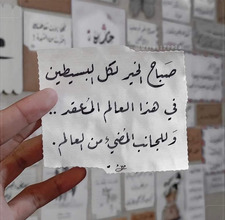 صباح الخير لكل البسيطين
في هذا العالم المعقد ..
وللجانب المضيء من العالم .